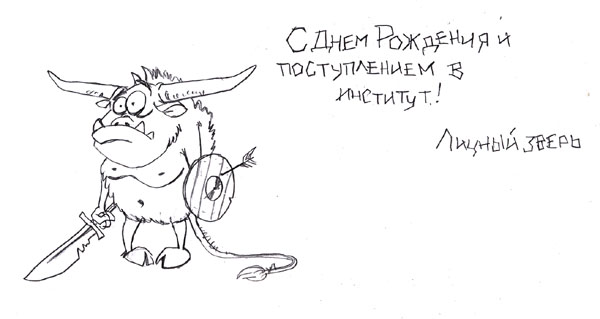 С Днем Рождения и
поступлением в
институт!
Личный зверь